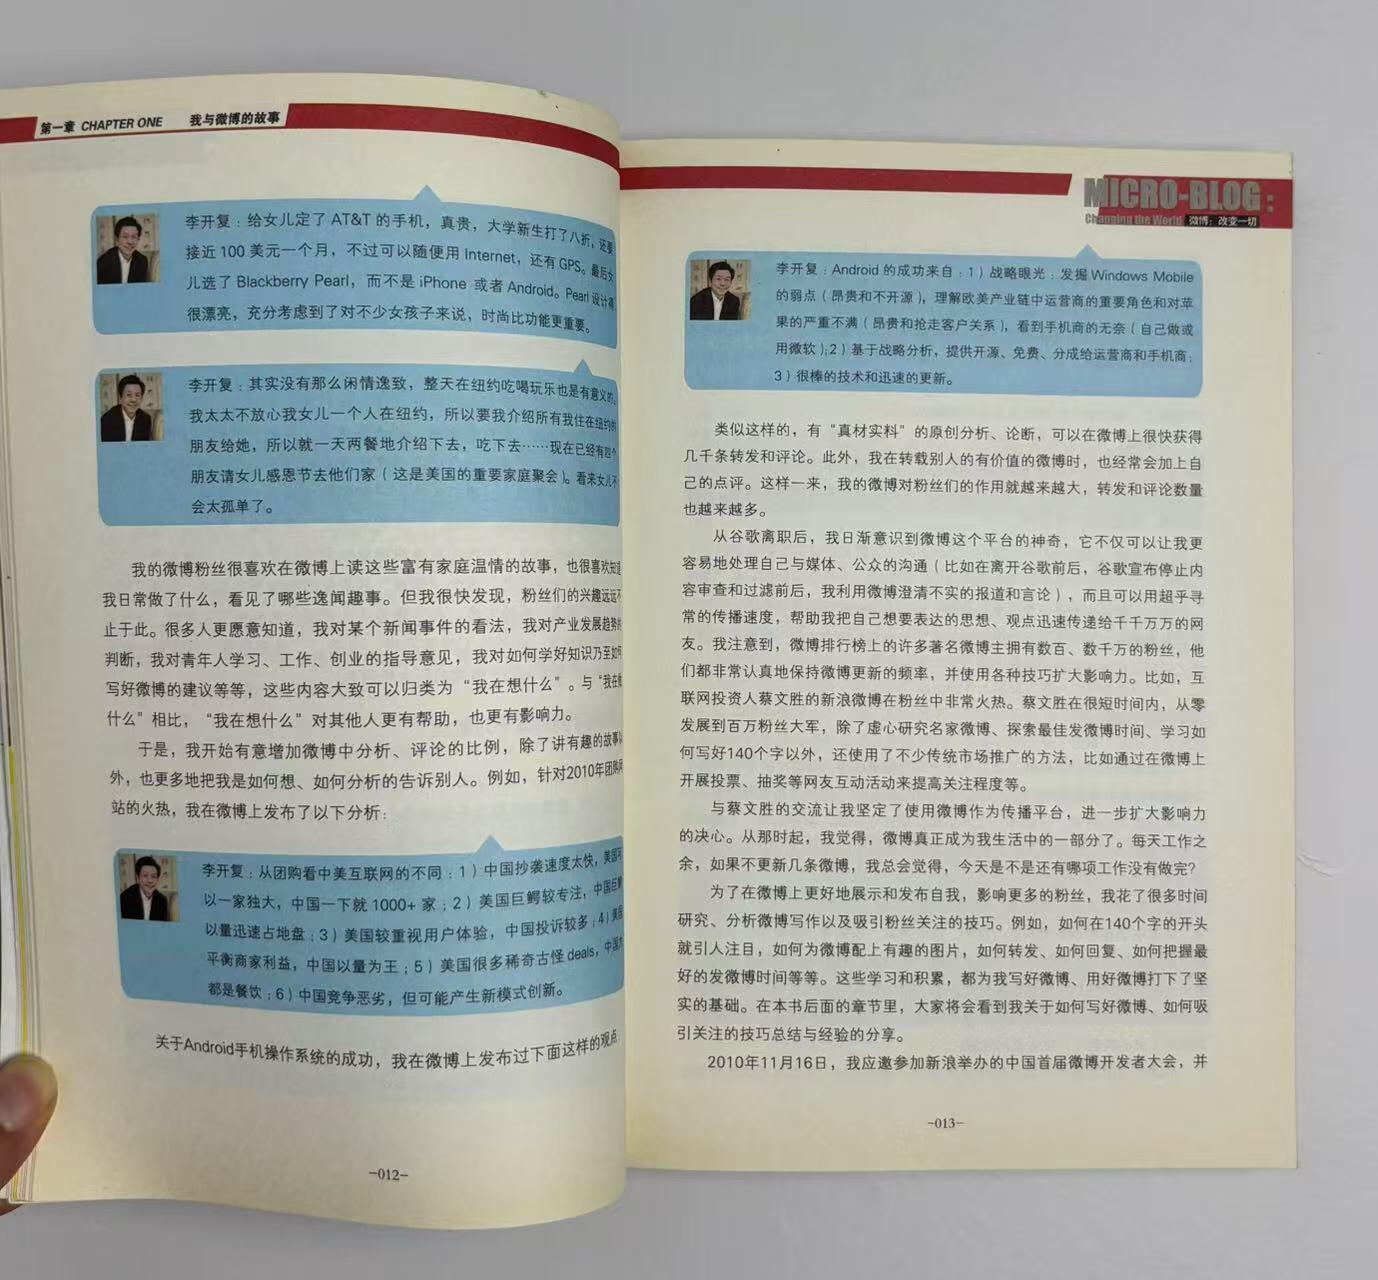 第一章 CHAPTER ONE 我与微博的故事
李开复：给女儿定了 AT&T 的手机，真贵，大学新生打了八折，还要
接近 100 美元一个月，不过可以随便用 Internet，还有 GPS。最后女
儿选了 Blackberry Pearl，而不是 iPhone 或者 Android。Pearl 设计得
很漂亮，充分考虑到了对不少女孩子来说，时尚比功能更重要。
李开复：其实没有那么闲情逸致，整天在纽约吃喝玩乐也是有意义的。
我太太不放心我女儿一个人在纽约，所以要我介绍所有我住在纽约的
朋友给她，所以就一天两餐地介绍下去，吃下去……现在已经有四个
朋友请女儿感恩节去他们家（这是美国的重要家庭聚会）。看来女儿不
会太孤单了。
我的微博粉丝很喜欢在微博上读这些富有家庭温情的故事，也很喜欢知道
我日常做了什么，看见了哪些逸闻趣事。但我很快发现，粉丝们的兴趣远远不
止于此。很多人更愿意知道，我对某个新闻事件的看法，我对产业发展趋势的
判断，我对青年人学习、工作、创业的指导意见，我对如何学好知识乃至如何
写好微博的建议等等，这些内容大致可以归类为“我在想什么”。与“我在做
什么”相比，“我在想什么”对其他人更有帮助，也更有影响力。
于是，我开始有意增加微博中分析、评论的比例，除了讲有趣的故事以
外，也更多地把我是如何想、如何分析的告诉别人。例如，针对2010年团购网
站的火热，我在微博上发布了以下分析：
李开复：从团购看中美互联网的不同：1）中国抄袭速度太快，美国可
以一家独大，中国一下就 1000+ 家；2）美国巨鳄较专注，中国巨鳄
以量迅速占地盘；3）美国较重视用户体验，中国投诉较多；4）美国
平衡商家利益，中国以量为王；5）美国很多稀奇古怪 deals，中国
都是餐饮；6）中国竞争恶劣，但可能产生新模式创新。
关于Android手机操作系统的成功，我在微博上发布过下面这样的观点：
-012-
MICRO-BLOG:
Changing the World 微博：改变一切
李开复：Android 的成功来自：1）战略眼光：发掘 Windows Mobile
的弱点（昂贵和不开源），理解欧美产业链中运营商的重要角色和对苹
果的严重不满（昂贵和抢走客户关系），看到手机商的无奈（自己做或
用微软）；2）基于战略分析，提供开源、免费、分成给运营商和手机商；
3）很棒的技术和迅速的更新。
类似这样的，有“真材实料”的原创分析、论断，可以在微博上很快获得
几千条转发和评论。此外，我在转载别人的有价值的微博时，也经常会加上自
己的点评。这样一来，我的微博对粉丝们的作用就越来越大，转发和评论数量
也越来越多。
从谷歌离职后，我日渐意识到微博这个平台的神奇，它不仅可以让我更
容易地处理自己与媒体、公众的沟通（比如在离开谷歌前后，谷歌宣布停止内
容审查和过滤前后，我利用微博澄清不实的报道和言论），而且可以用超乎寻
常的传播速度，帮助我把自己想要表达的思想、观点迅速传递给千千万万的网
友。我注意到，微博排行榜上的许多著名微博主拥有数百、数千万的粉丝，他
们都非常认真地保持微博更新的频率，并使用各种技巧扩大影响力。比如，互
联网投资人蔡文胜的新浪微博在粉丝中非常火热。蔡文胜在很短时间内，从零
发展到百万粉丝大军，除了虚心研究名家微博、探索最佳发微博时间、学习如
何写好140个字以外，还使用了不少传统市场推广的方法，比如通过在微博上
开展投票、抽奖等网友互动活动来提高关注程度等。
与蔡文胜的交流让我坚定了使用微博作为传播平台，进一步扩大影响力
的决心。从那时起，我觉得，微博真正成为我生活中的一部分了。每天工作之
余，如果不更新几条微博，我总会觉得，今天是不是还有哪项工作没有做完？
为了在微博上更好地展示和发布自我，影响更多的粉丝，我花了很多时间
研究、分析微博写作以及吸引粉丝关注的技巧。例如，如何在140个字的开头
就引人注目，如何为微博配上有趣的图片，如何转发、如何回复、如何把握最
好的发微博时间等等。这些学习和积累，都为我写好微博、用好微博打下了坚
实的基础。在本书后面的章节里，大家将会看到我关于如何写好微博、如何吸
引关注的技巧总结与经验的分享。
2010年11月16日，我应邀参加新浪举办的中国首届微博开发者大会，并
-013-